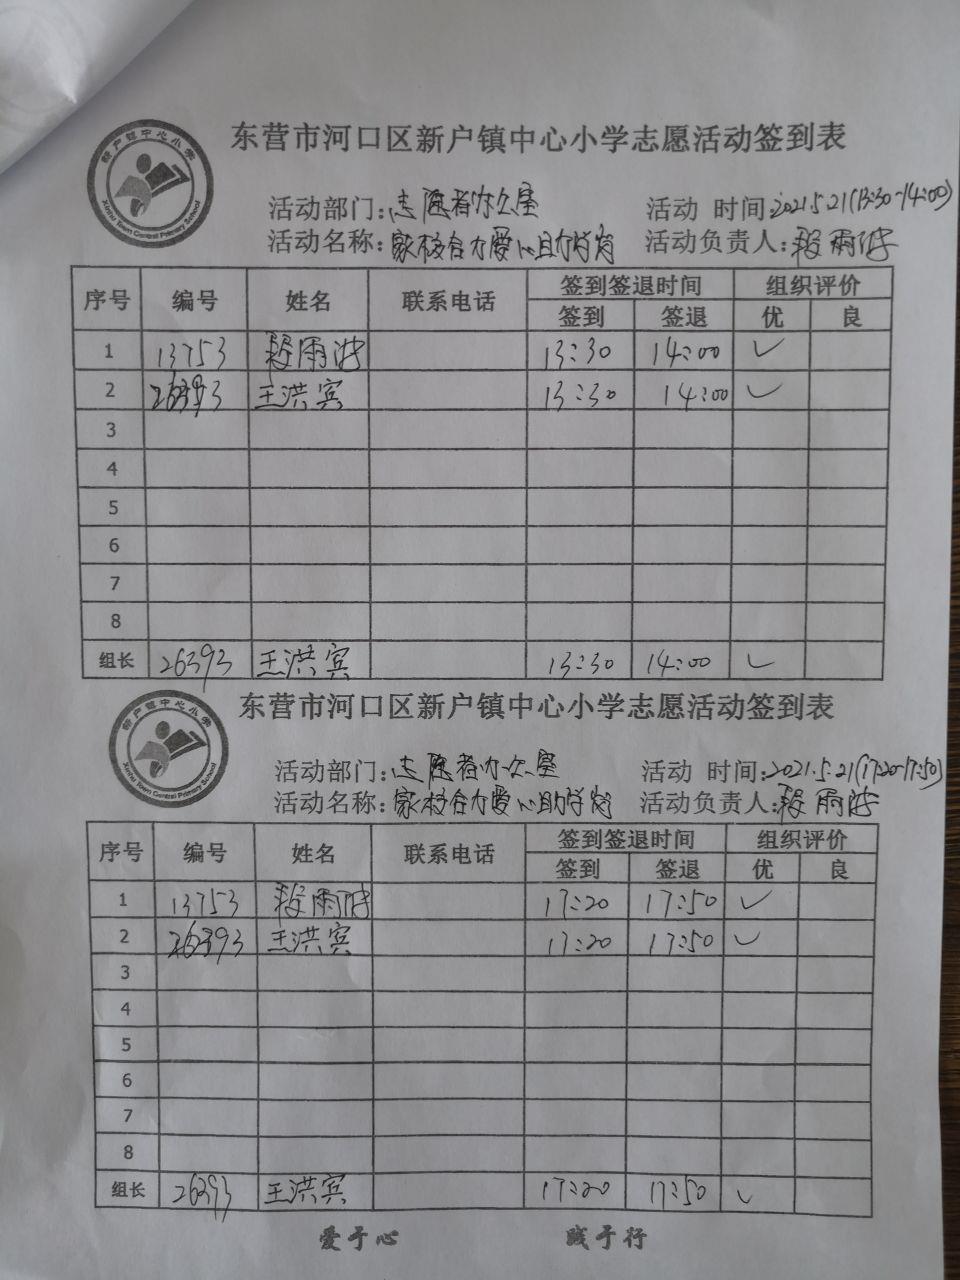 新户镇中心小学
Xinhu Town Central Primary School
东营市河口区新户镇中心小学志愿活动签到表
活动部门:志愿者办公室 活动 时间:2021.5.21(13:30-14:00)
活动名称:家校合力爱心助学岗 活动负责人:段雨
序号 编号 姓名 联系电话 签到签退时间 组织评价
签到 签退 优 良
1 13753 段雨 13:30 14:00 ✓
2 26393 王洪宾 13:30 14:00 ✓
3
4
5
6
7
8
组长 26393 王洪宾 13:30 14:00 ✓
新户镇中心小学
Xinhu Town Central Primary School
东营市河口区新户镇中心小学志愿活动签到表
活动部门:志愿者办公室 活动 时间:2021.5.21(17:20-17:50)
活动名称:家校合力爱心助学岗 活动负责人:段雨
序号 编号 姓名 联系电话 签到签退时间 组织评价
签到 签退 优 良
1 13753 段雨 17:20 17:50 ✓
2 26393 王洪宾 17:20 17:50 ✓
3
4
5
6
7
8
组长 26393 王洪宾 17:20 17:50 ✓
爱于心 践于行